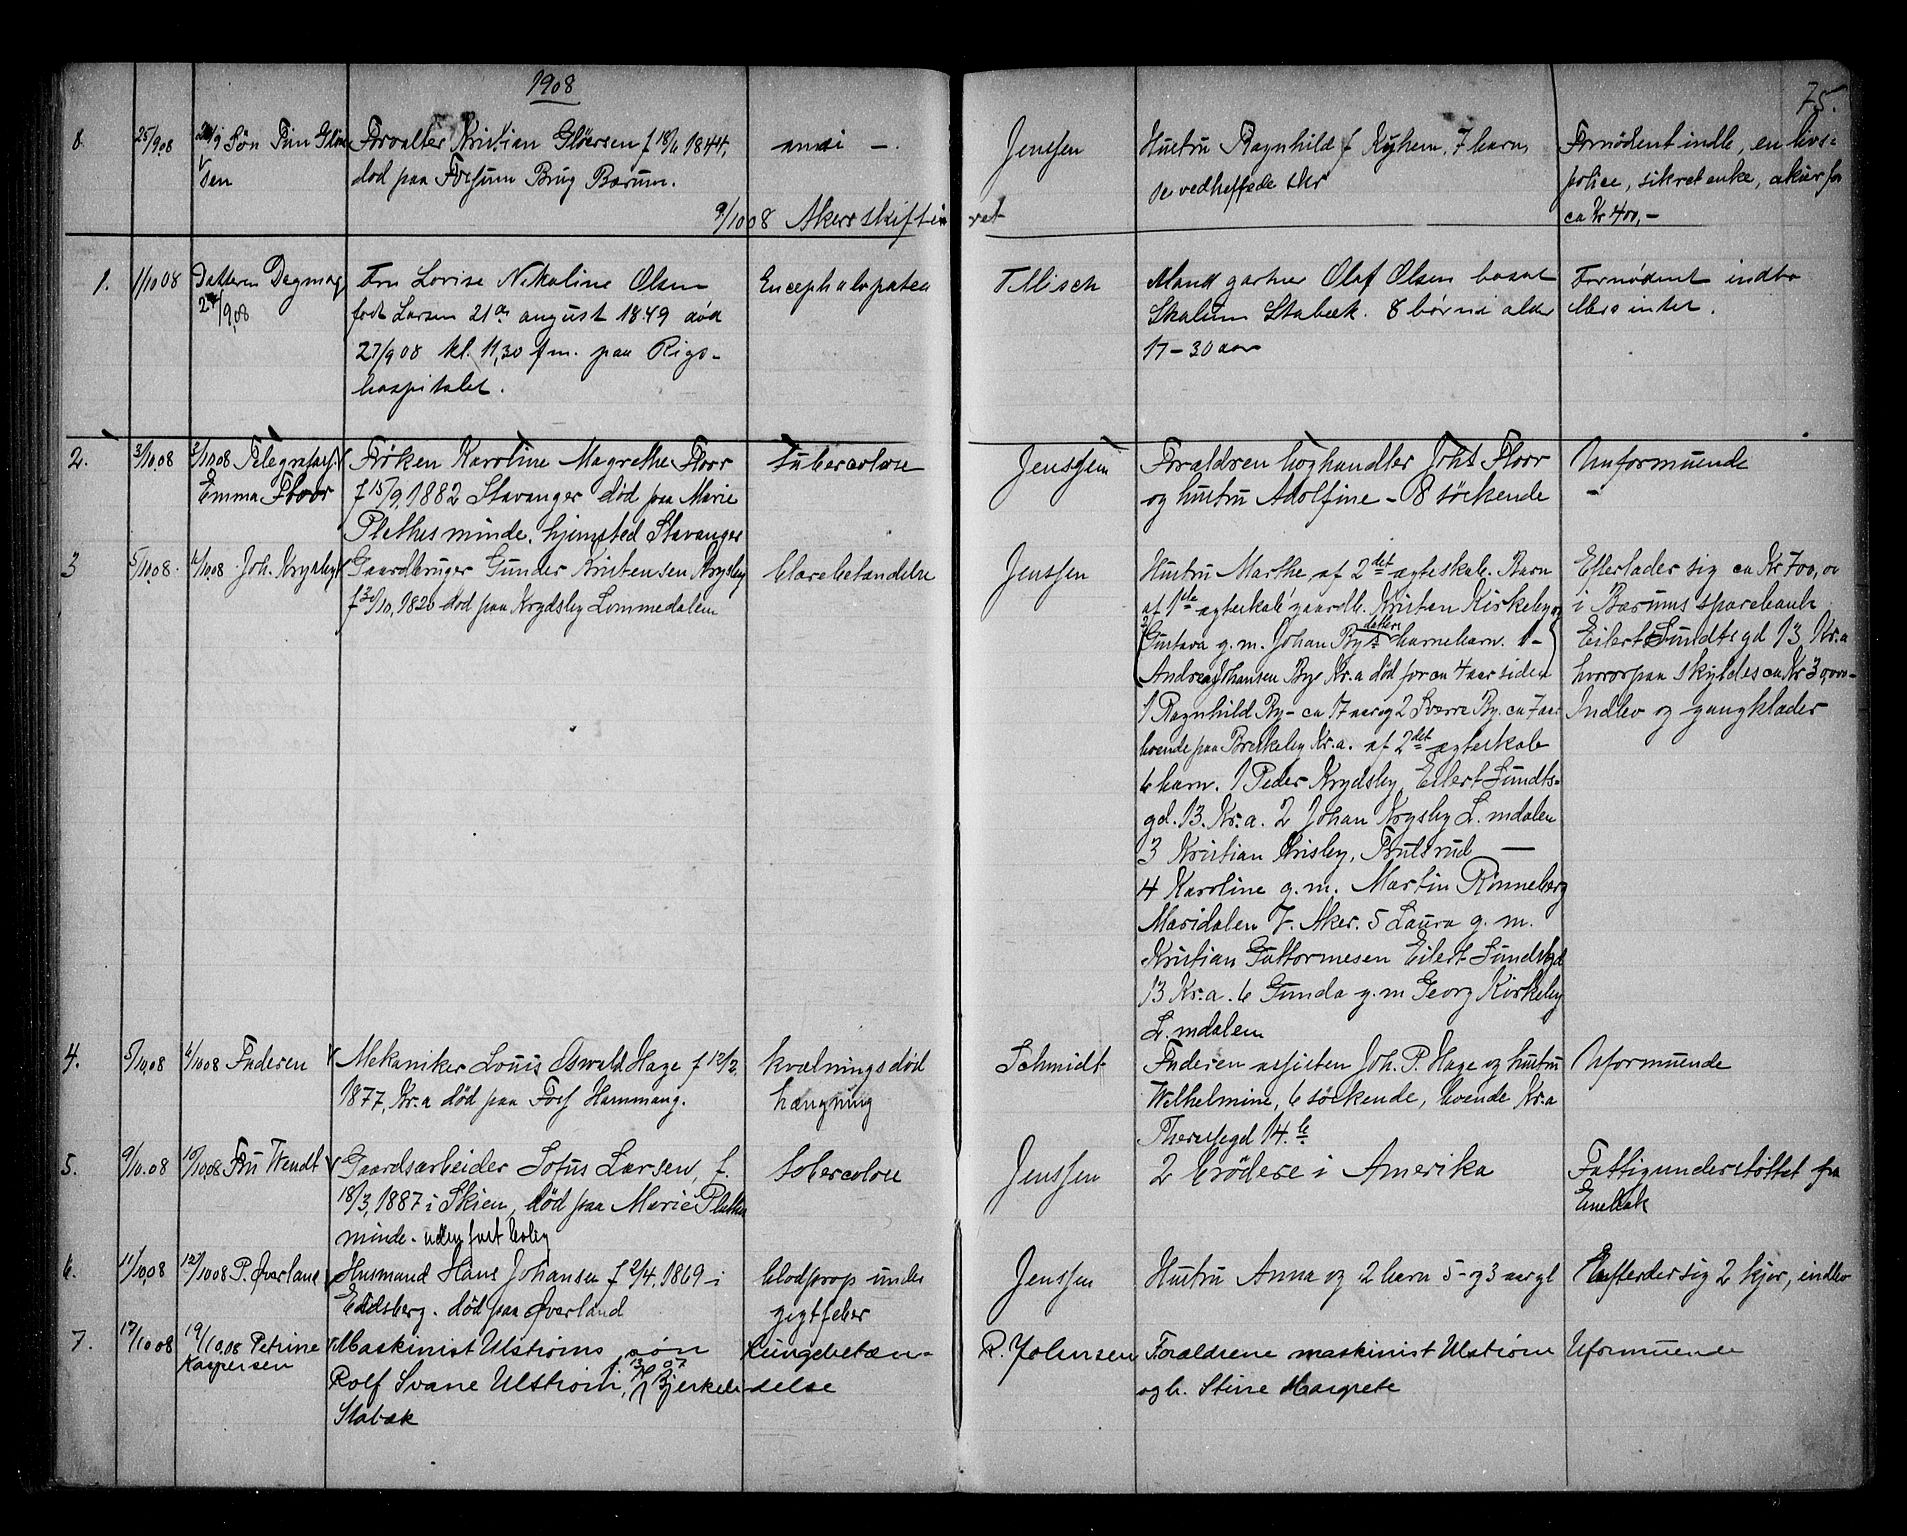 1908
75.
8. 25/9 08 Søn Finn Gløer
sen
Forvalter Kristian Gløersen f 18/11 1844,
død paa Fossum Brug Bærum.
Jenssen
Hustru Ragnhild f Kyhem, 7 barn,
se vedheftede skr
Fornødent indb, en livs=
police, sikret enke, akier for
ca Kr 400,-
9/10 08 Akers skifteret
1. 1/10 08 Datteren Dagmar
27/9,08
Fru Lovise Nikoline Olsen
født Larsen 21de august 1849 død
27/9 08 kl. 11,30 fm. paa Rigs-
hospitalet.
Encephalopatea
Tillisch
Mand gartner Olaf Olsen bosat
Skalum Stabæk. 8 børn i alder
17-30 aar
Fornødent indbo
ellers intet.
2. 3/10,08 3/10,08 Telegrafass.
Emma Floor
Frøken Karoline Magrethe Floor
f 15/9, 1882 Stavanger død paa Marie
Plathes minde. hjemsted Stavanger
tubercolose
Jenssen
Forældren boghandler Johs Floor
og hustru Adolfine - 8 søskende
Unformuende
3 5/10,08 6/10,08 Joh. Krydsby
Gaardbruger Gunder Kristensen Krysby
f 30/10, 1820 død paa Krydsby Lommedalen
blærebetændelse
Jenssen
Hustru Marthe af 2det ægteskab. Barn
af 1ste ægteskab gaardb. Kristen Kirkeby og
Gustava g.m. Johan By's datters barnebarn. 1-
Andrea Johansen Bye Kr.a død for ca 4 aar siden
1 Ragnhild By- ca 17 aar og 2 Sverre By. ca 7 aar
boende paa Breskeby Kr.a. af 2det ægteskab
6 barn. 1 Peder Krydsby, Eilert Sundts-
gd. 13. Kr.a. 2 Johan Krysby L.mdalen
3 Kristian Krisby, Trulsrud —
4 Karoline g.m. Martin Rønneberg
Maridalen V. Aker. 5 Laura g.m.
Kristian Guttormesen Eilert Sundsgd
13 Kr.a. 6 Gunda g.m Georg Kirkeby
L.mdalen
Efterlader sig ca Kr 700,00
i Bærums sparebank
Eilert Sundtsgd 13 Kr.a
hvorpaa skyldes ca Kr 3000-
Indbo og gangklæder
4. 5/10,08 6/10 08 Faderen
Mekaniker Louis Oswald Hage f 12/2.
1877, Kr.a død paa Foss Hammang.
kvælningsdød
hængning
Schmidt
Faderen Joh. P. Hage og hustru
Wilhelmine, 6 søskende, boende Kr.a
Theresegd 14.b
Uformuende
5. 9/10.08 10/10,08 Fru Wendt
Gaardsarbeider Lotus Larsen, f.
18/3, 1887 i Skien, død paa Marie Plathes
minde. uden fast bolig
tobercolose
Jenssen
2 brødere i Amerika
Fattigunderstøttet fra
Enebak
6. 11/10,08 12/10 08 P. Øverland
Husmand Hans Johansen f 2/4, 1869 i
Eidsberg. død paa Øverland
blodprop under
gigtfeber
Jenssen
Hustru Anna og 2 barn 5- og 3 aar gl
Efterlader sig 2 kjør, indbo
7. 17/10 08 19/10,08 Petrine
Kaspersen
Maskinist Ulstrøms søn
Rolf Svane Ulstrøm, f. 13/12 07 Bjerkeli
Stabæk
Lungebetæn-
delse
R. Johnsen
Forældrene maskinist Ulstrøm
og h. Stine Margrete
Uformuende